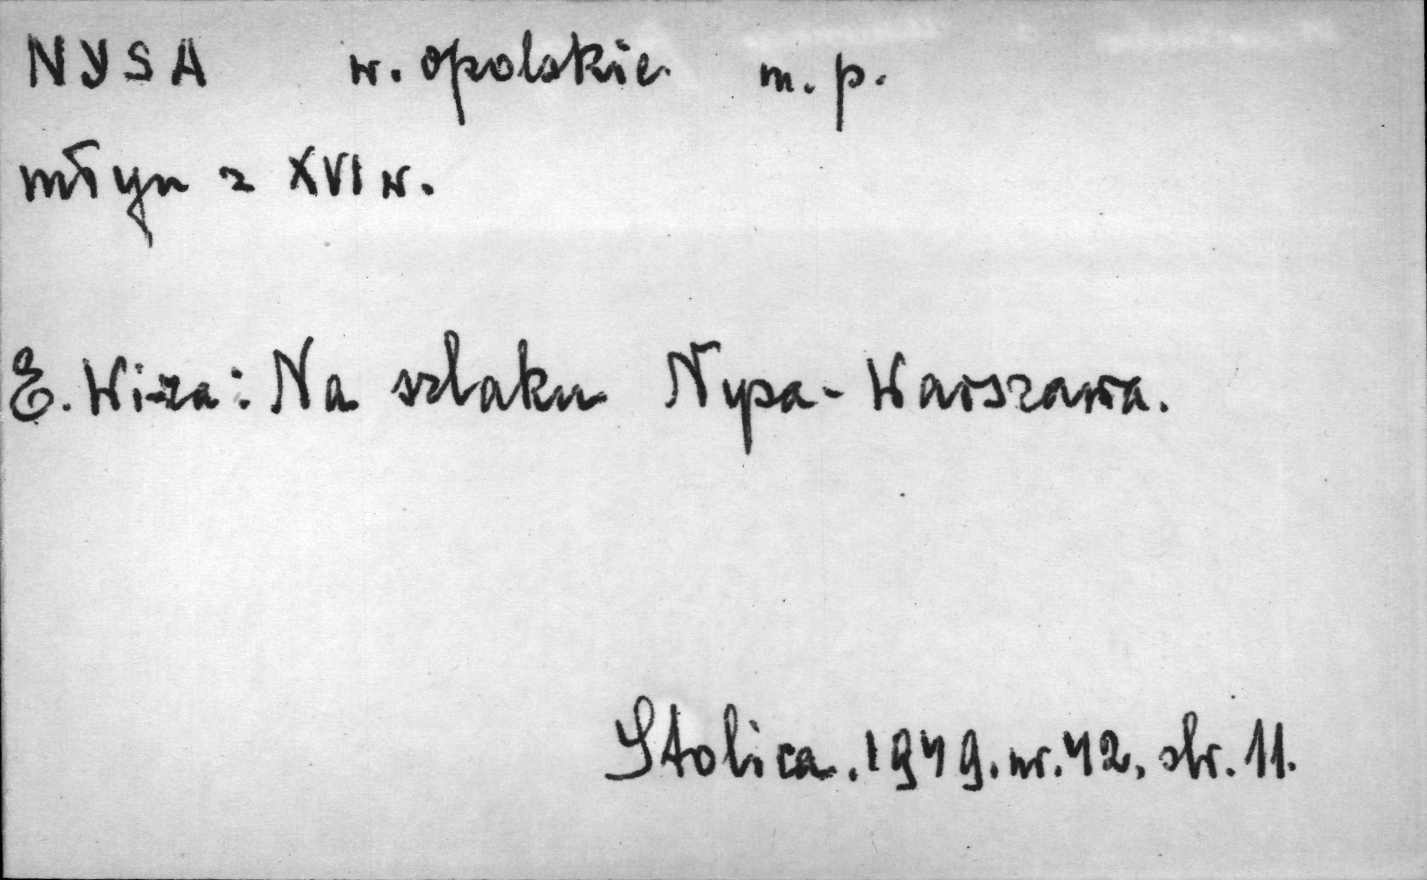 NYSA w. opolskie m. p.
młyn z XVI w.
E. Wiza: Na szlaku Nysa-Warszawa.
Stolica. 1949. nr. 42. str. 11.